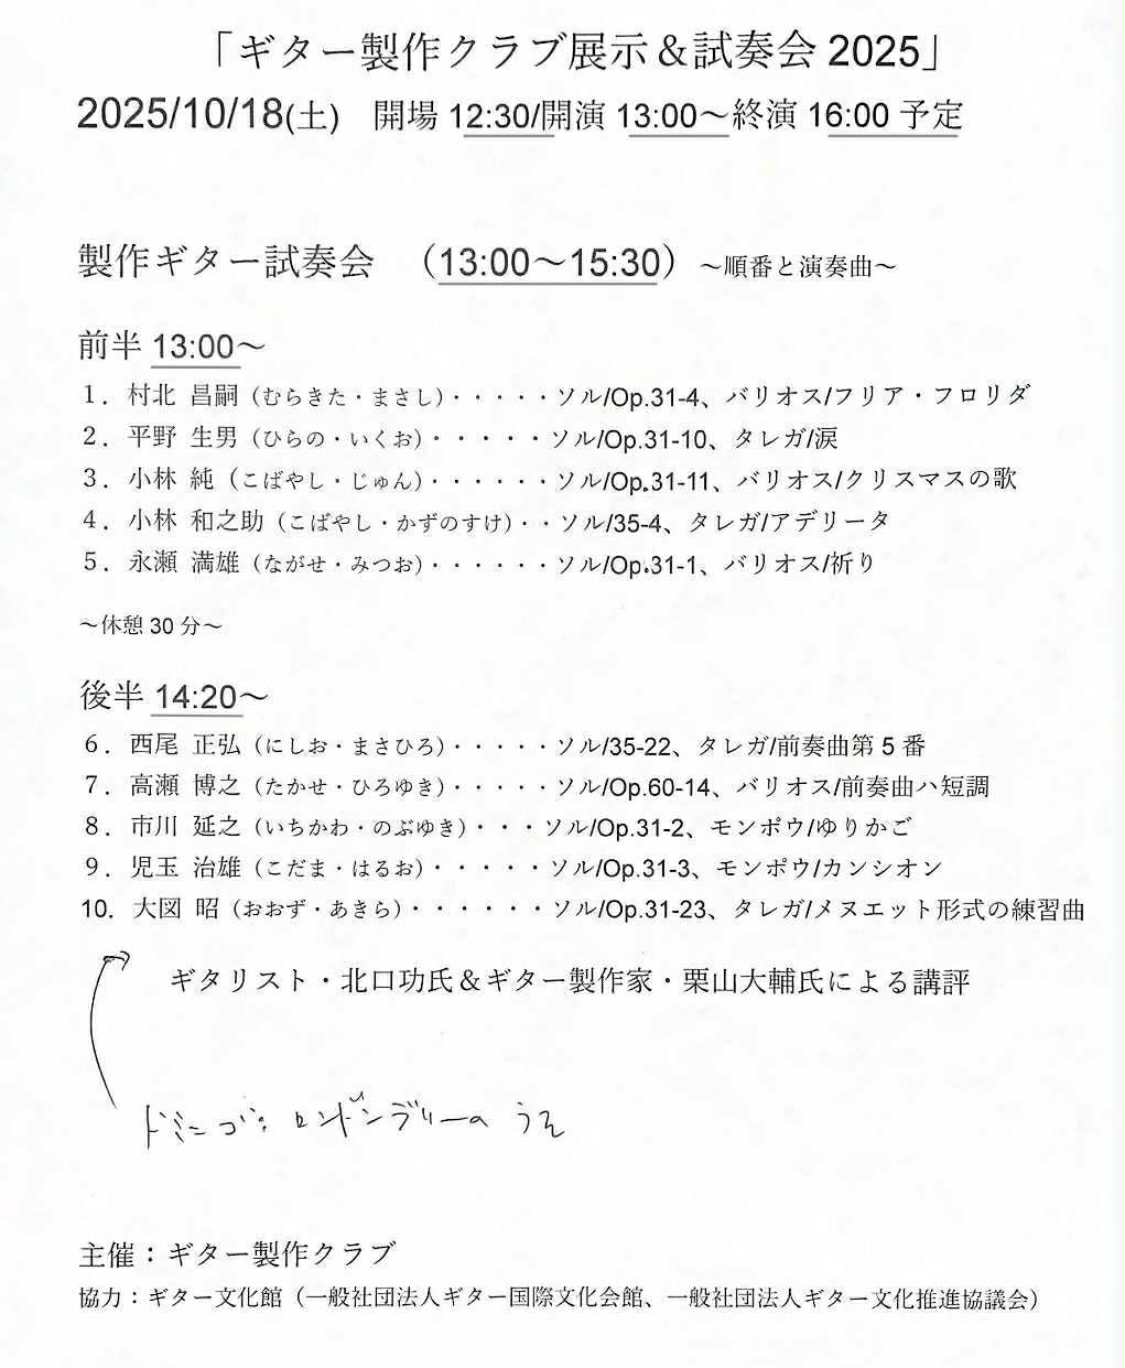 「ギター製作クラブ展示＆試奏会 2025」
2025/10/18(土)　開場 12:30/開演 13:00～終演 16:00 予定
製作ギター試奏会　（13:00～15:30）～順番と演奏曲～
前半 13:00～
１．村北 昌嗣（むらきた・まさし）・・・・・ソル/Op.31-4、バリオス/フリア・フロリダ
２．平野 生男（ひらの・いくお）・・・・・ソル/Op.31-10、タレガ/涙
３．小林 純（こばやし・じゅん）・・・・・・ソル/Op.31-11、バリオス/クリスマスの歌
４．小林 和之助（こばやし・かずのすけ）・・ソル/35-4、タレガ/アデリータ
５．永瀬 満雄（ながせ・みつお）・・・・・・ソル/Op.31-1、バリオス/祈り
～休憩 30 分～
後半 14:20～
６．西尾 正弘（にしお・まさひろ）・・・・・ソル/35-22、タレガ/前奏曲第５番
７．高瀬 博之（たかせ・ひろゆき）・・・・・ソル/Op.60-14、バリオス/前奏曲ハ短調
８．市川 延之（いちかわ・のぶゆき）・・・ソル/Op.31-2、モンポウ/ゆりかご
９．児玉 治雄（こだま・はるお）・・・・・ソル/Op.31-3、モンポウ/カンシオン
10．大図 昭（おおず・あきら）・・・・・・ソル/Op.31-23、タレガ/メヌエット形式の練習曲
ギタリスト・北口功氏＆ギター製作家・栗山大輔氏による講評
ドミニゴ：
主催：ギター製作クラブ
協力：ギター文化館（一般社団法人ギター国際文化会館、一般社団法人ギター文化推進協議会）